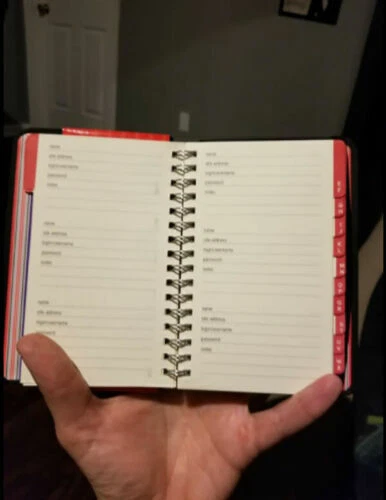 name
site address
login/username
password
notes
name
site address
login/username
password
notes
name
site address
login/username
password
name
site address
login/username
password
notes
name
site address
login/username
password
notes
name
site address
login/username
password
notes